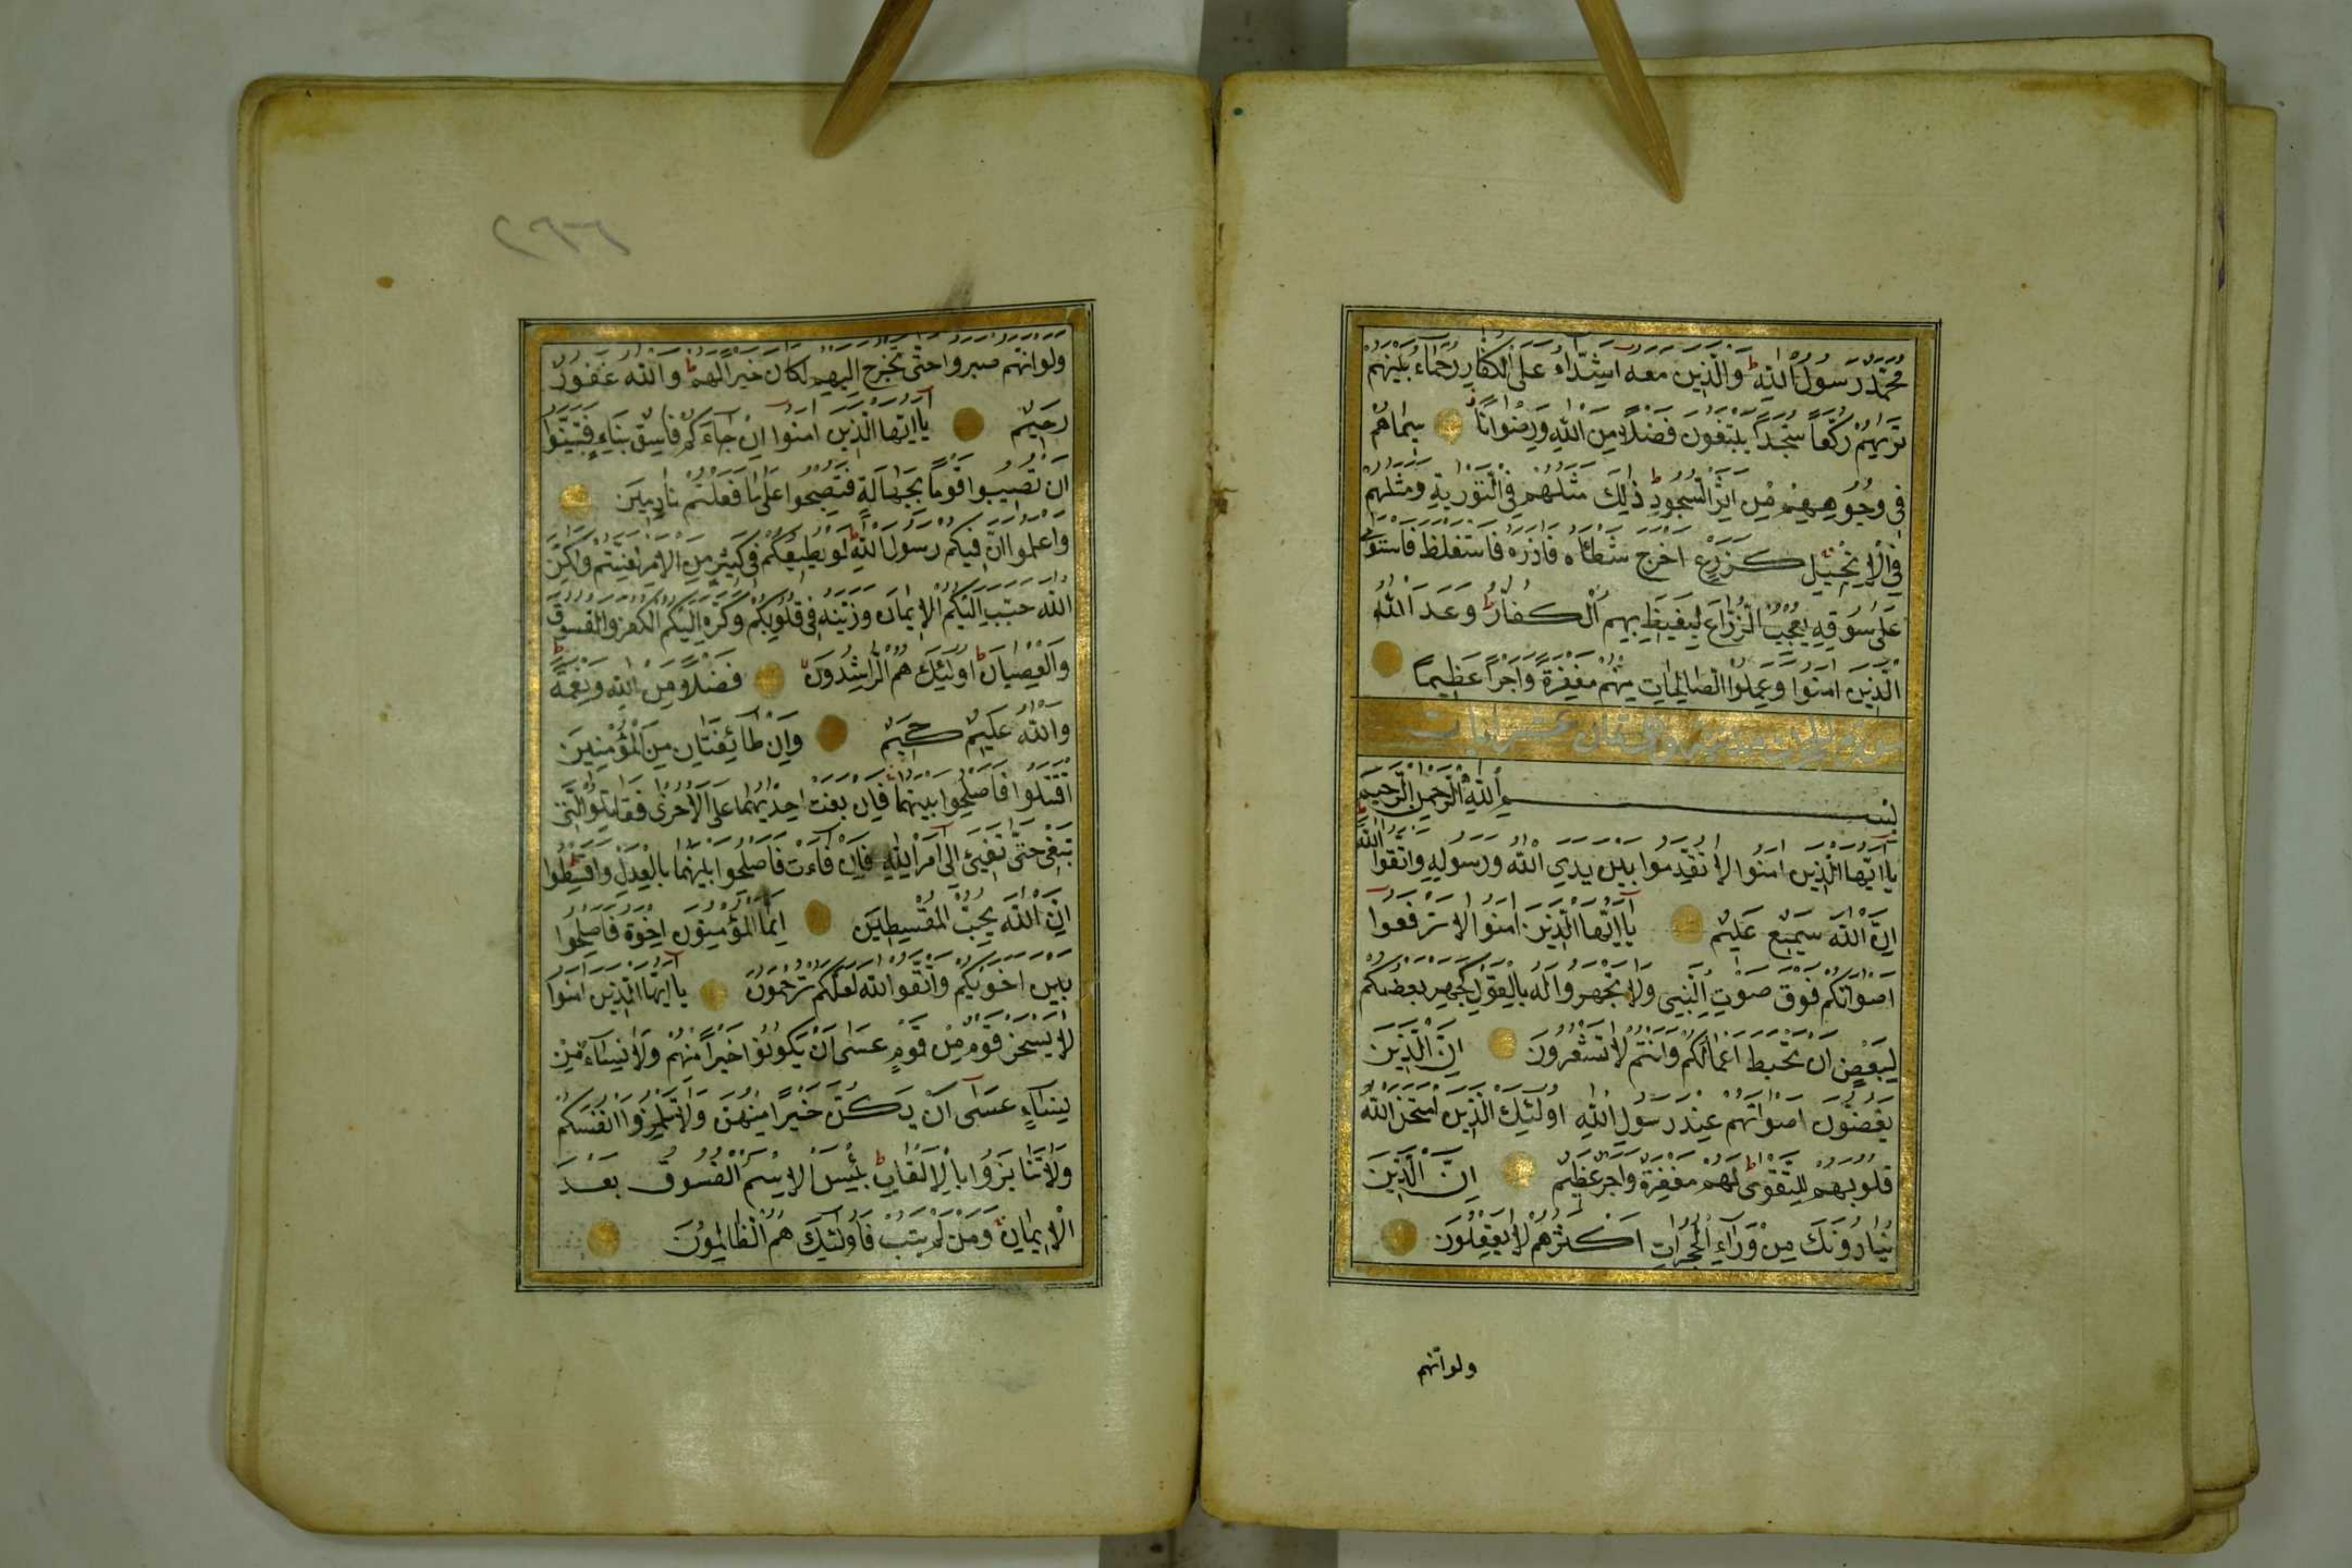 محمد رسول الله والذين معه اشداء على الكفار رحماء بينهم
تريهم ركعا سجدا يبتغون فضلا من الله ورضوانا سيماهم
في وجوههم من اثر السجود ذلك مثلهم في التورية ومثلهم
في الانجيل كزرع اخرج شطاه فازره فاستغلظ فاستوى
على سوقه يعجب الزراع ليغيظ بهم الكفار وعد الله
الذين امنوا وعملوا الصالحات منهم مغفرة واجرا عظيما
بسم الله الرحمن الرحيم
يا ايها الذين امنوا لا تقدموا بين يدي الله ورسوله واتقوا الله
ان الله سميع عليم يا ايها الذين امنوا لا ترفعوا
اصواتكم فوق صوت النبى ولا تجهروا له بالقول كجهر بعضكم
لبعض ان تحبط اعمالكم وانتم لا تشعرون ان الذين
يغضون اصواتهم عند رسول الله اولئك الذين امتحن الله
قلوبهم للتقوى لهم مغفرة واجر عظيم ان الذين
ينادونك من وراء الحجرات اكثرهم لا يعقلون
ولو انهم
٢٩٦
ولو انهم صبروا حتى تخرج اليهم لكان خيرا لهم والله غفور
رحيم يا ايها الذين امنوا ان جاءكم فاسق بنباء فتبينوا
ان تصيبوا قوما بجهالة فتصبحوا على ما فعلتم نادمين
واعلموا ان فيكم رسول الله لو يطيعكم في كثير من الامر لعنتم ولكن
الله حبب اليكم الايمان وزينه في قلوبكم وكره اليكم الكفر والفسوق
والعصيان اولئك هم الراشدون فضلا من الله ونعمة
والله عليم حكيم وان طائفتان من المؤمنين
اقتتلوا فاصلحوا بينهما فان بغت احديهما على الاخرى فقاتلوا التى
تبغى حتى تفيئ الى امر الله فان فاءت فاصلحوا بينهما بالعدل واقسطوا
ان الله يحب المقسطين انما المؤمنون اخوة فاصلحوا
بين اخويكم واتقوا الله لعلكم ترحمون يا ايها الذين امنوا
لا يسخر قوم من قوم عسى ان يكونوا خيرا منهم ولا نساء من
نساء عسى ان يكن خيرا منهن ولا تلمزوا انفسكم
ولا تنابزوا بالالقاب بئس الاسم الفسوق بعد
الايمان ومن لم يتب فاولئك هم الظالمون